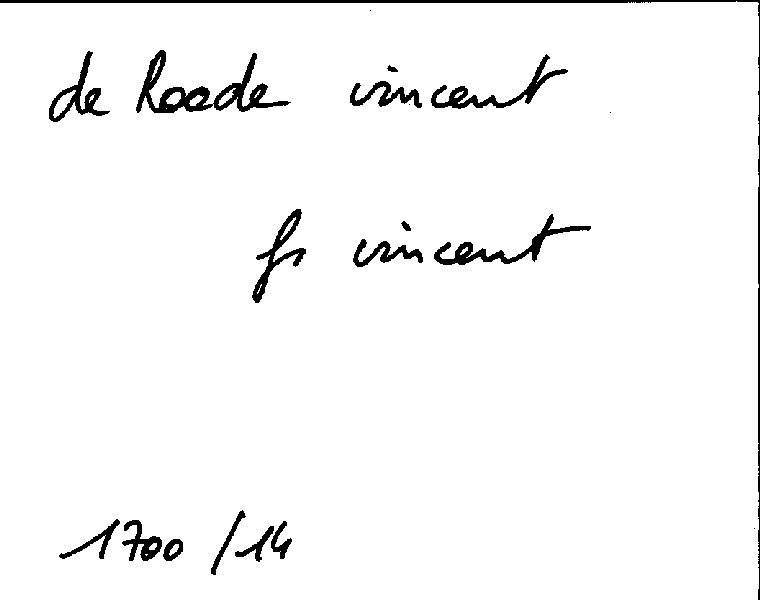 de Roode vincent
fs vincent
1700 /14